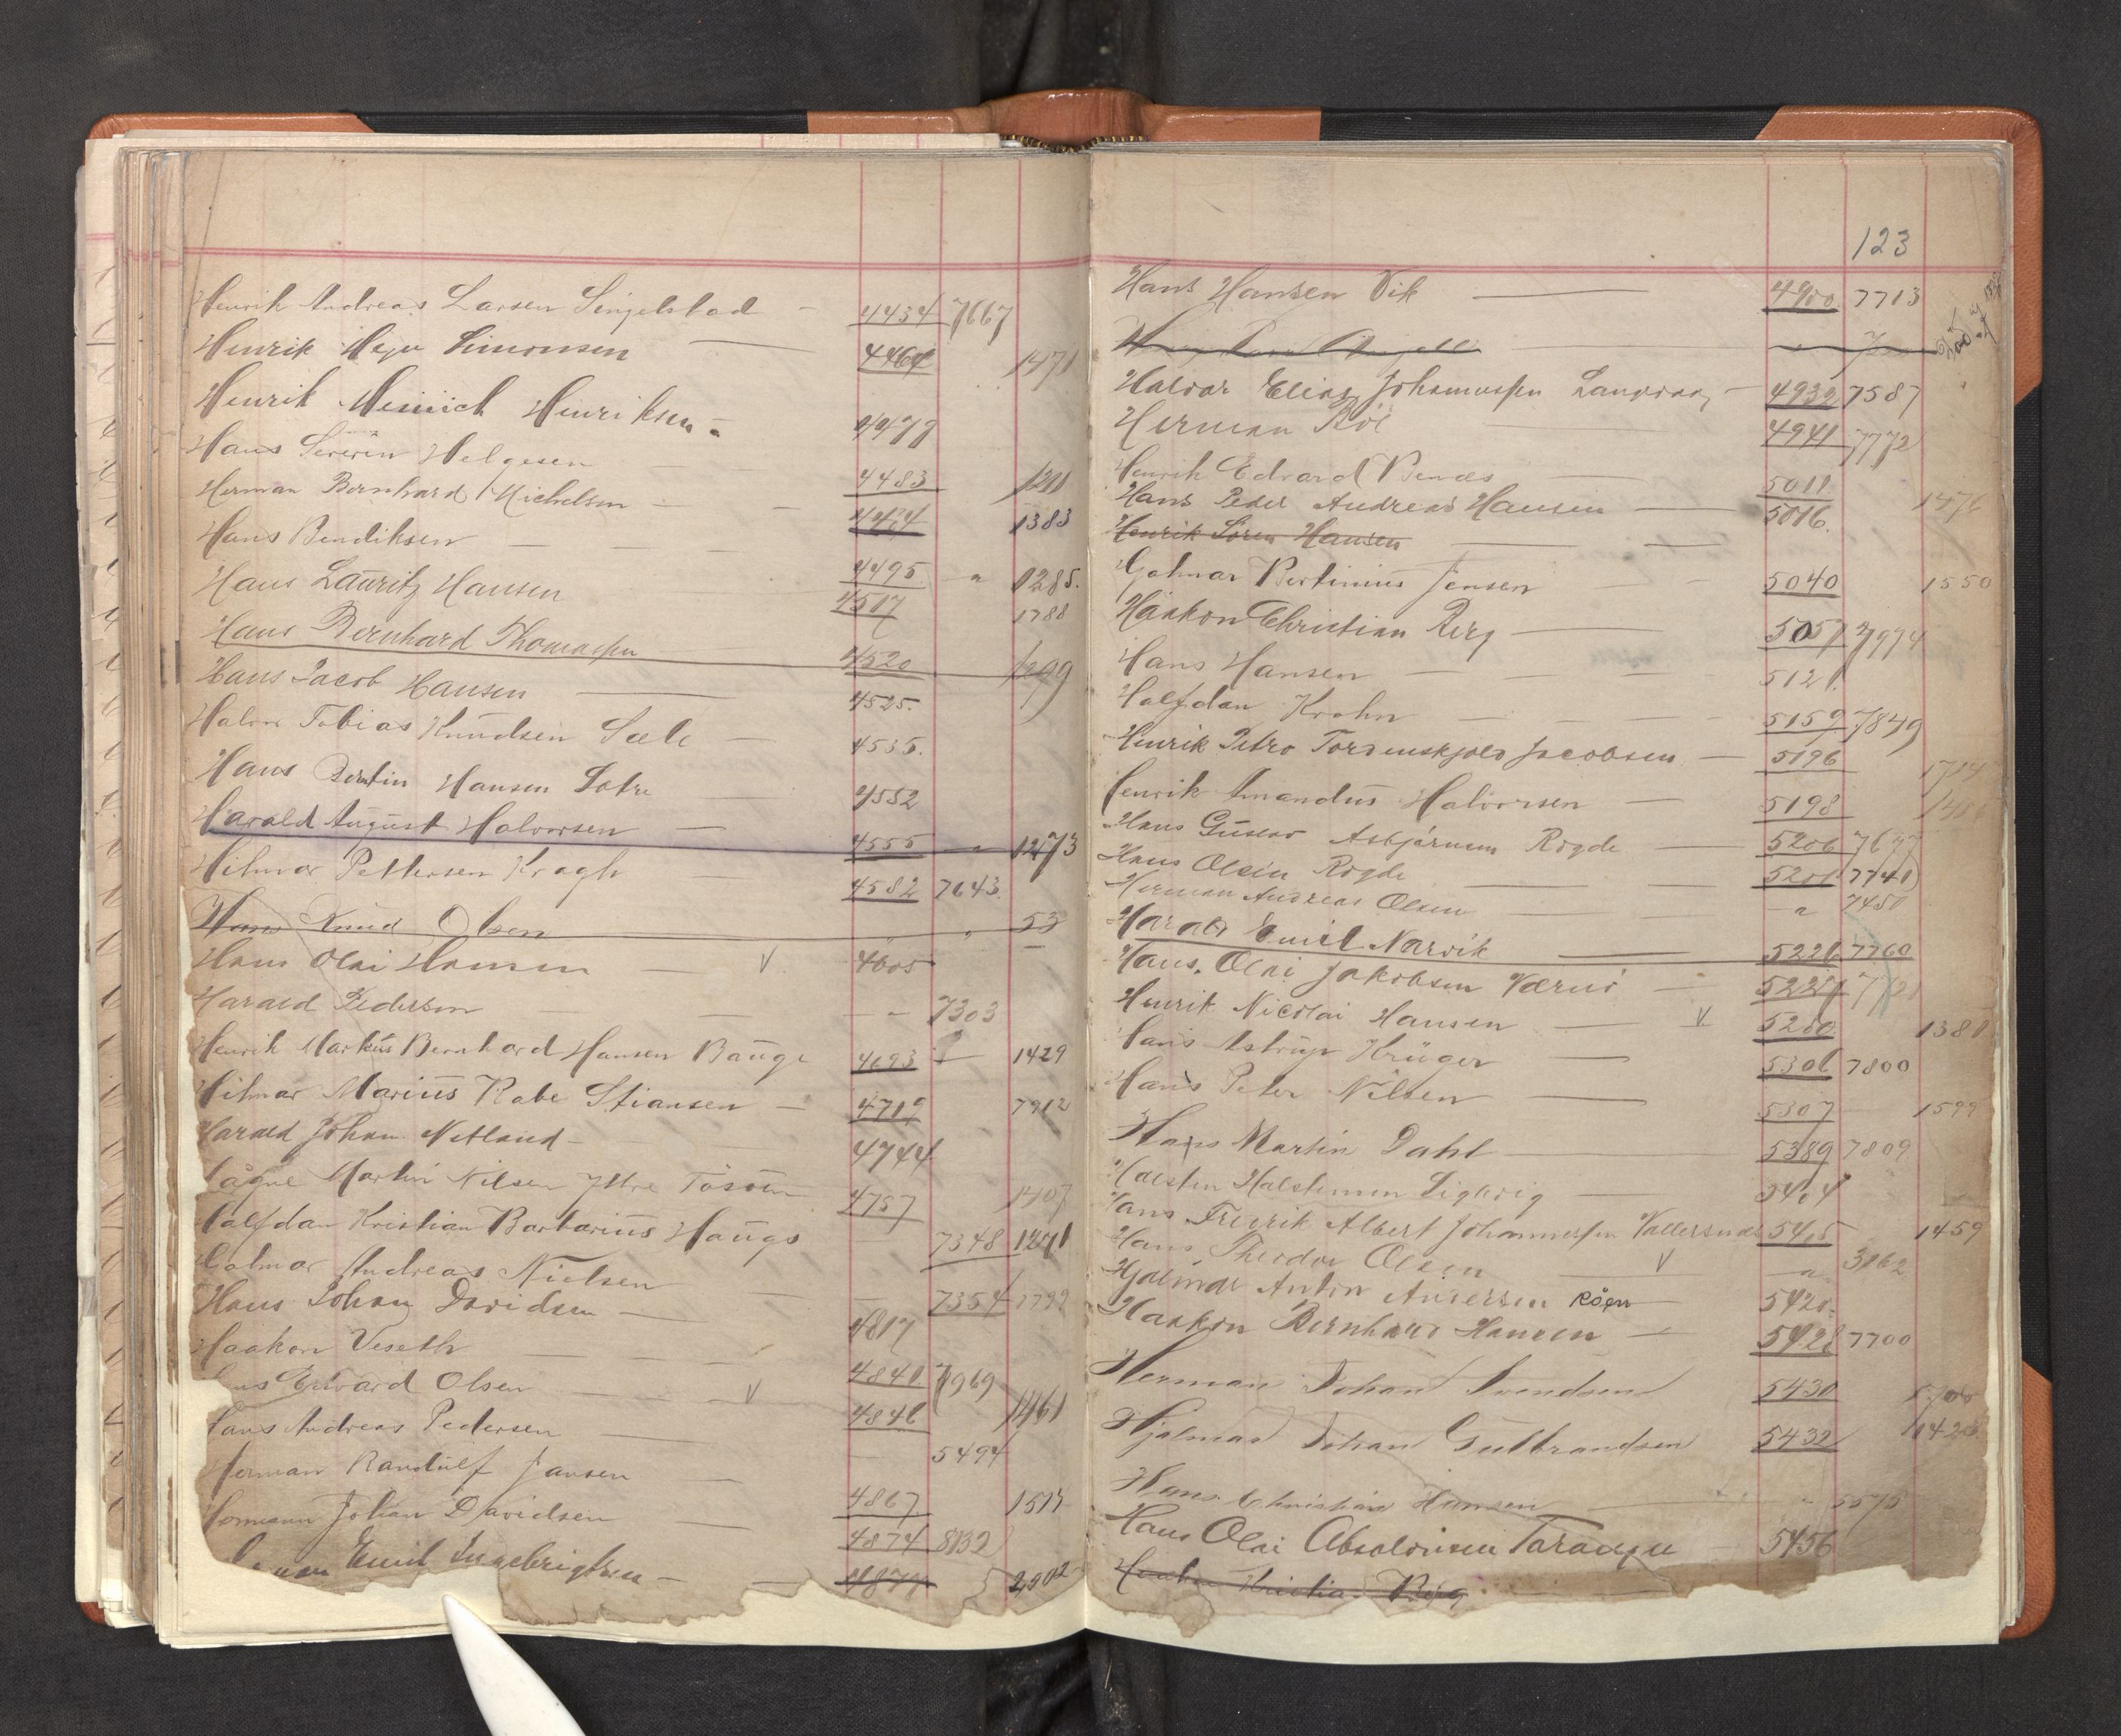 Henrik Andreas Larsen Singelstad - 4434 7667
Henrik Simonsen 4464 1471
Henrik Meinich Henriksen 4477
Hans Severin Helgesen 4483
Herman Bernhard Michelsen 1383
Hans Bendiksen 4495 1285
Hans Lauritz Hansen 4517 1788
Hans Bernhard Thomassen 4520 1299
Hans Jacob Hansen 4525
Halvor Tobias Knudsen Sæle 4535.
Hans Bertin Hansen Sotre 4552
Harald August Halvorsen 4555 " 1273
Hilmar Pettersen Kragh 4582 7643
Hans Knud Olsen " 53
Hans Olai Hansen V 4605
Harald Pedersen " 7303
Henrik Markus Bernhard Hansen Bauge 4693 1429
Hilmar Marius Rabe Stiansen 4719 7912
Harald Johan Netland 4744
Martin Nilsen Ytre 4757 1407
Halfdan Kristian Barbarius Haugs 7348 1291
Andreas Nielsen 7354 1792
Hans Johan Davidsen 4817
Haakon Veseth 4840 7969
Edvard Olsen V 4846 1461
Hans Andreas Pedersen 5494
Herman Randulf Jansen 4867 1517
Hermann Johan Davidsen 4874 8132
Emil Ingebrigtsen 4877 2902
123
Hans Hansen Vik 4900 7713
Halvor Elias Johannessen 4932 7587
Herman Böe 4941 7772
Henrik Edvard 5011
Hans Peder Andreas Hansen 5016. 1476
Henrik Sören Hansen
Bertinius Jensen 5040 1550
Haakon Christian Berg 5057 7974
Hans Hansen 5121.
Halfdan Krohn 5159 7849
Henrik Petro Tordenskjold Jacobsen 5196 1714
Henrik Amandus Halvorsen 5198
Hans Gustav Asbjørnsen Rogde 5206
Hans Olsen Rogde
Herman Andreas Olsen " 7450
Harald Emil Narvik 5226 7760
Hans Olai Jakobsen Værnö
Henrik Nicolai Hansen V 5280 1381
Hans Astrup Krüger 5306 7800
Hans Peter Nilsen 5307 1599
Hans Martin Dahl 5389 7809
Halsten Halstensen 5404
Hans Fredrik Albert Johannessen 5405 1459
Hans Theodor Olsen V " 3862
Hjalmar Anton Andersen Röen 5420.
Haakon Bernhard Hansen 5428 7700
Herman Johan Svendsen 5430
Hjalmar Johan Gulbrandsen 5432
Hans Christian Hansen " 5575
Hans Olai Absalonsen 5456
Berg